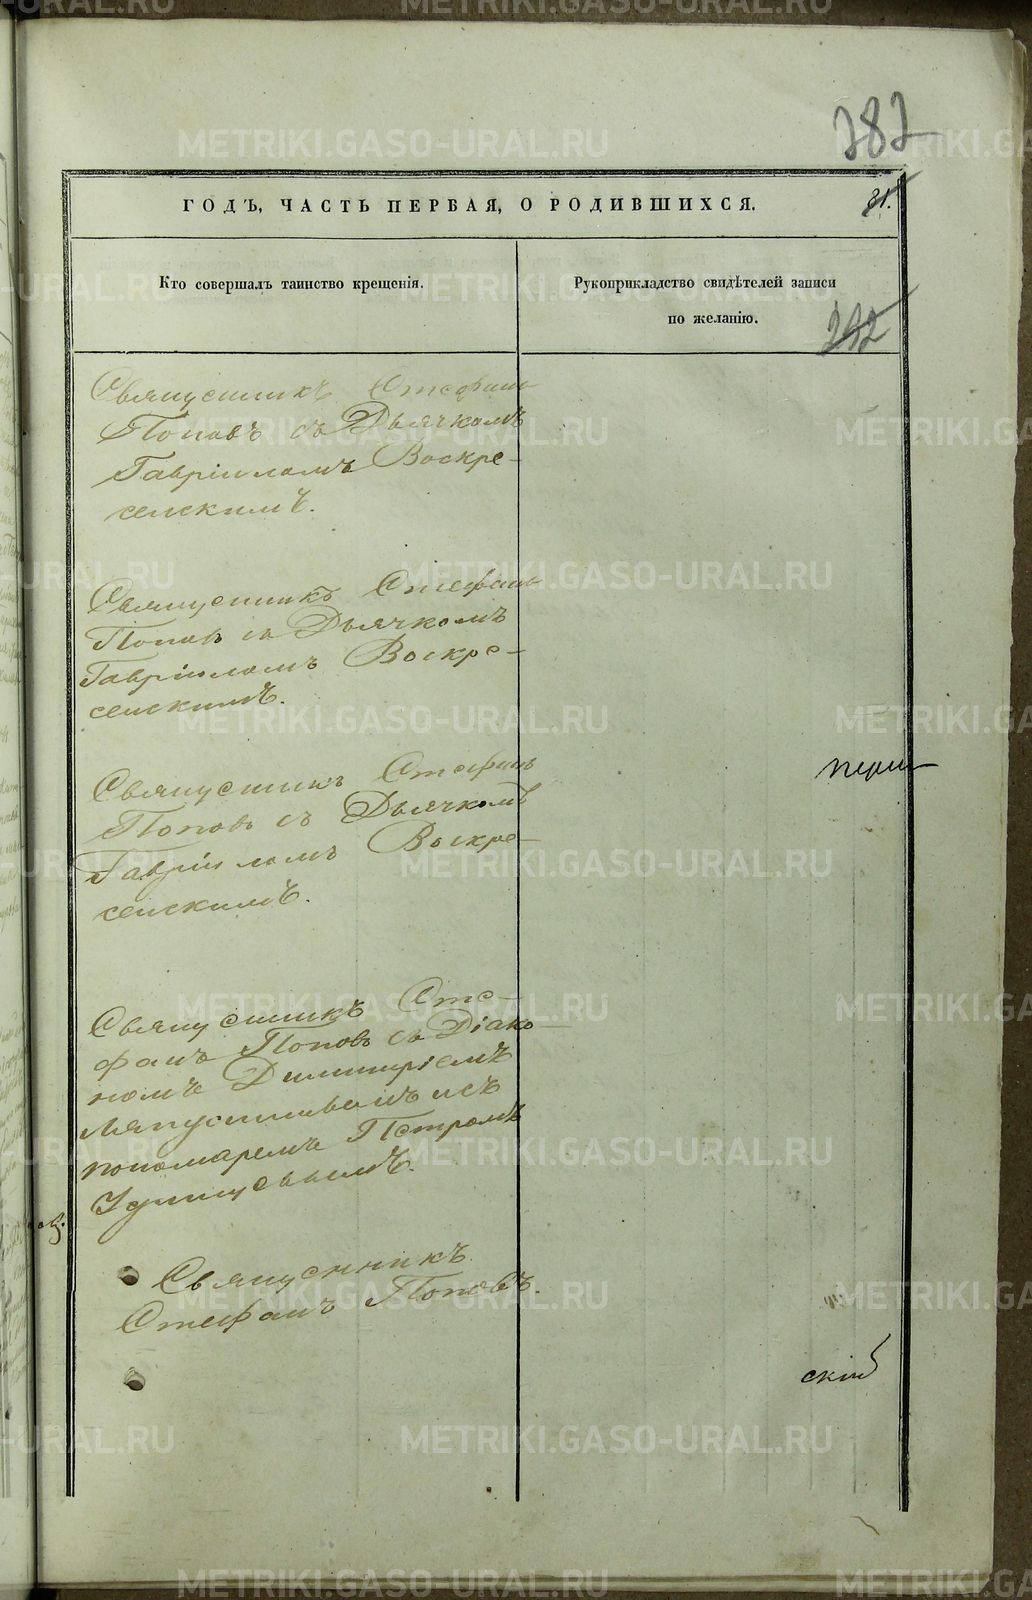 282
ГОДЪ, ЧАСТЬ ПЕРВАЯ, О РОДИВШИХСЯ.
81.
Кто совершалъ таинство крещенія.
Рукоприкладство свидѣтелей записи
по желанію.
242
Священникъ Стефанъ
Поповъ съ Дьячкомъ
Гавріиломъ Воскре-
сенскимъ.
Священникъ Стефанъ
Поповъ съ Дьячкомъ
Гавріиломъ Воскре-
сенскимъ.
Священникъ Стефанъ
Поповъ съ Дьячкомъ
Гавріиломъ Воскре-
сенскимъ.
Священникъ Сте-
фанъ Поповъ съ Діако-
номъ Димитріемъ
Ляпустинымъ и съ
пономаремъ Петромъ
Священникъ
Стефанъ Поповъ.
скій
METRIKI.GASO-URAL.RU